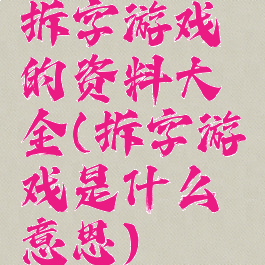 拆字游戏
的资料大
全(拆字游
戏是什么
意思)